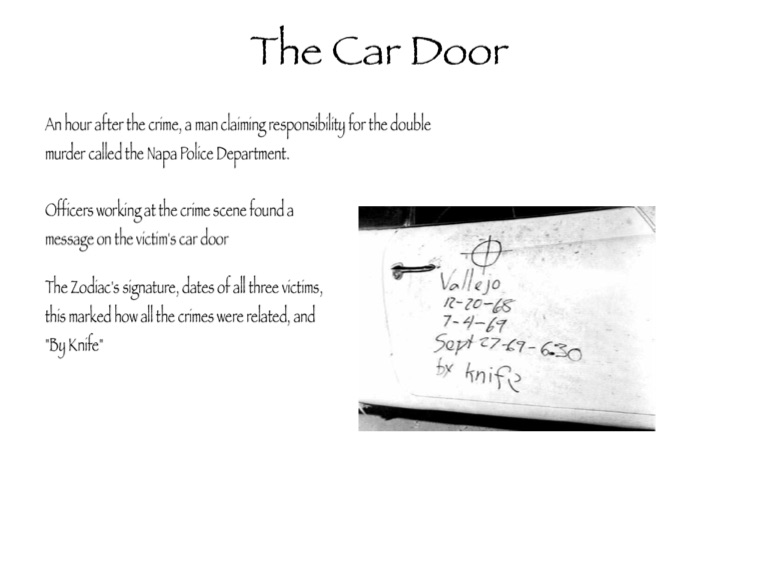 The Car Door
An hour after the crime, a man claiming responsibility for the double
murder called the Napa Police Department.
Officers working at the crime scene found a
message on the victim's car door
The Zodiac's signature, dates of all three victims,
this marked how all the crimes were related, and
"By Knife"
Vallejo
12-20-68
7-4-69
Sept 27-69-6:30
by knife